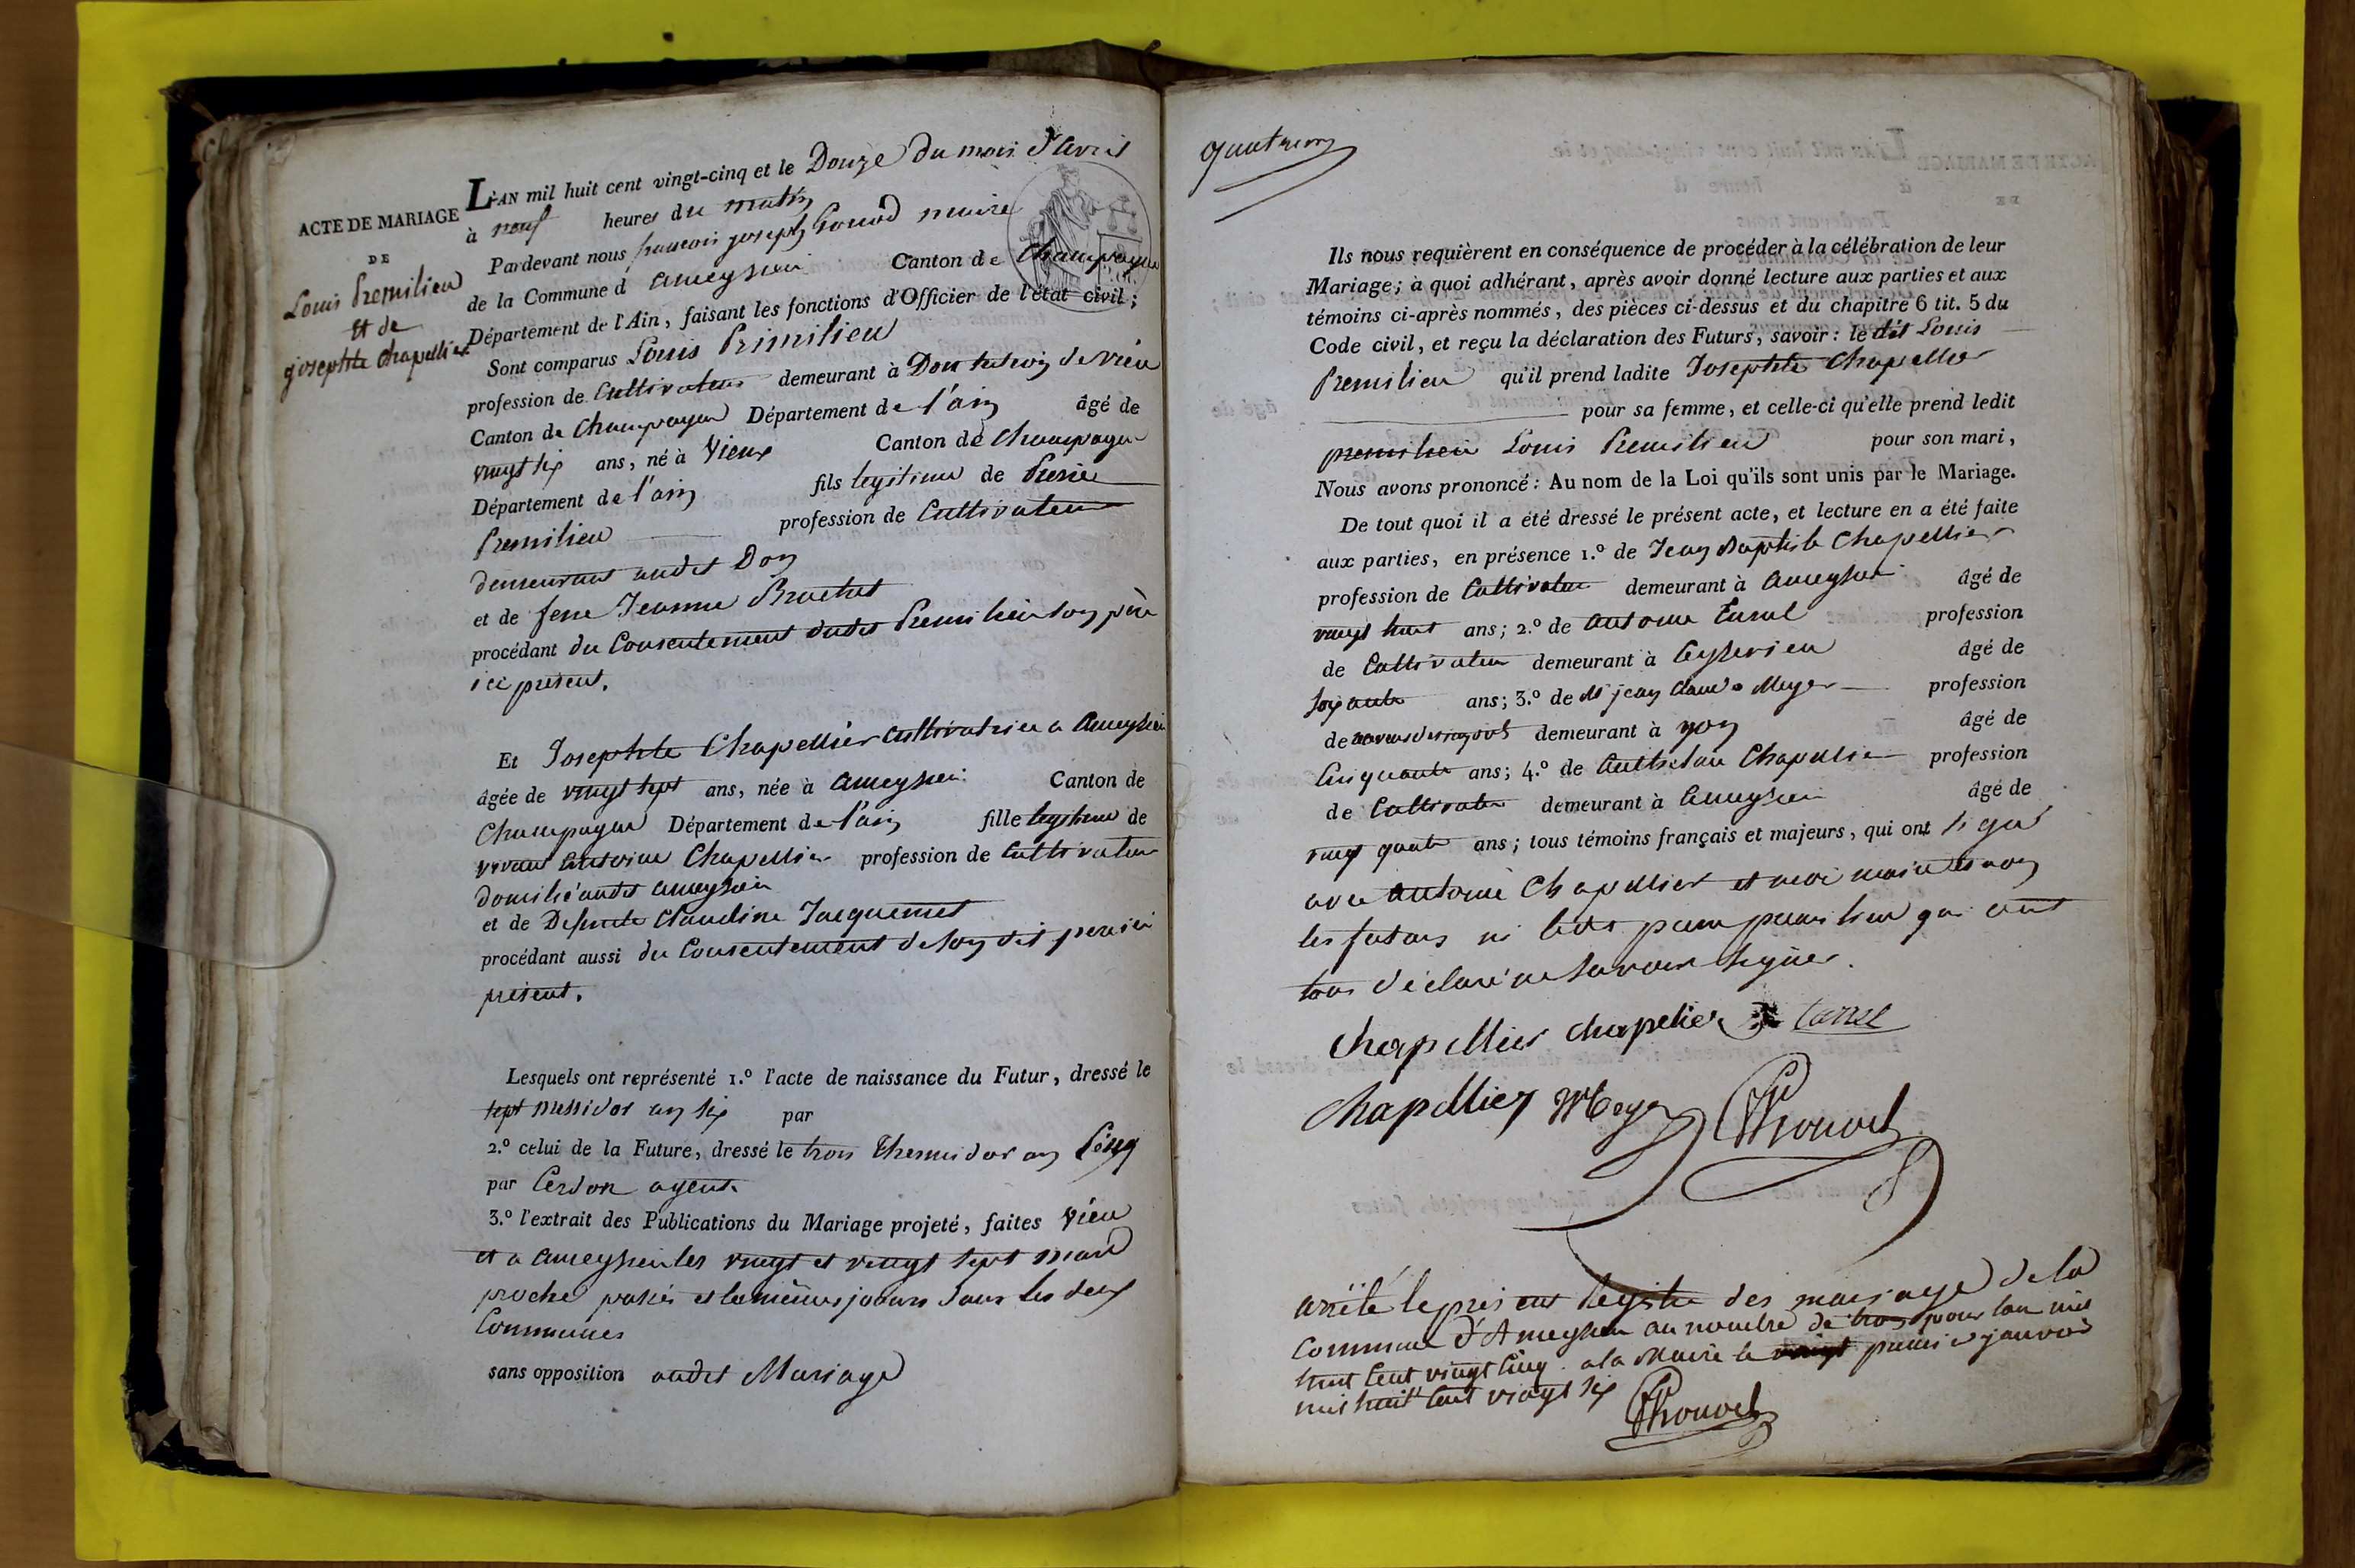 ACTE DE MARIAGE
DE
Louis Premilieu
et de
josephte Chapellier
L'AN mil huit cent vingt-cinq et le Douze du mois d'avril
à neuf heures du matin
Pardevant nous francois joseph maire
de la Commune d ameyzieu Canton de Champagne
Département de l'Ain, faisant les fonctions d'Officier de l'état civil;
Sont comparus Louis Primilieu
profession de Cultivateur demeurant à Don de vieu
Canton de Champagne Département de l'ain âgé de
vingt six ans, né à Vieux Canton de Champagne
Département de l'ain fils legitime de Pierre
Premilieu profession de Cultivateur
demeurant audit Don
et de feue Jeanne
procédant du Consentement dudit Premilieu son père
ici présent.
Et Josephte Chapellier cultivatrice a Ameyzieu
âgée de vingt sept ans, née à ameyzieu Canton de
Champagne Département de l'ain fille legitime de
vivant antoine Chapellier profession de Cultivateur
domicilié audit ameyzieu
et de Defunte Claudine Jacquemet
procédant aussi du Consentement de son dit pere ici
présent.
Lesquels ont représenté 1.º l'acte de naissance du Futur, dressé le
sept messidor an six par
2.º celui de la Future, dressé le trois Thermidor an Cinq
par Cerdon agent
3.º l'extrait des Publications du Mariage projeté, faites Vieu
et a ameyzieu les vingt et vingt sept mars
proche passés et les mêmes jours dans les deux
Communes
sans opposition audit Mariage
Ils nous requièrent en conséquence de procéder à la célébration de leur
Mariage; à quoi adhérant, après avoir donné lecture aux parties et aux
témoins ci-après nommés, des pièces ci-dessus et du chapitre 6 tit. 5 du
Code civil, et reçu la déclaration des Futurs, savoir: le dit Louis
Premilieu qu'il prend ladite Josephte Chapellier
pour sa femme, et celle-ci qu'elle prend ledit
premilieu Louis Premilieu pour son mari,
Nous avons prononcé: Au nom de la Loi qu'ils sont unis par le Mariage.
De tout quoi il a été dressé le présent acte, et lecture en a été faite
aux parties, en présence 1.º de Jean Baptiste Chapellier
profession de Cultivateur demeurant à ameyzieu âgé de
vingt huit ans; 2.º de antoine profession
de Cultivateur demeurant à Ceyzerieu âgé de
soixante ans; 3.º de M jean claude Meyer profession
de demeurant à yon âgé de
Cinquante ans; 4.º de Anthelme Chapellier profession
de Cultivateur demeurant à ameyzieu âgé de
vingt quatre ans; tous témoins français et majeurs, qui ont signé
avec antoine Chapellier et moi maire et non
les futurs ni qui ont
tous déclaré ne savoir signer.
chapellier chapelier
chapellier Meyer
arrêté le présent Registre des mariage de la
commune d'Ameyzieu au nombre de trois pour l'an mil
huit Cent vingt Cinq. a la Mairie le premier janvier
mil huit Cent vingt six